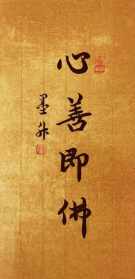 心善即佛
墨舟